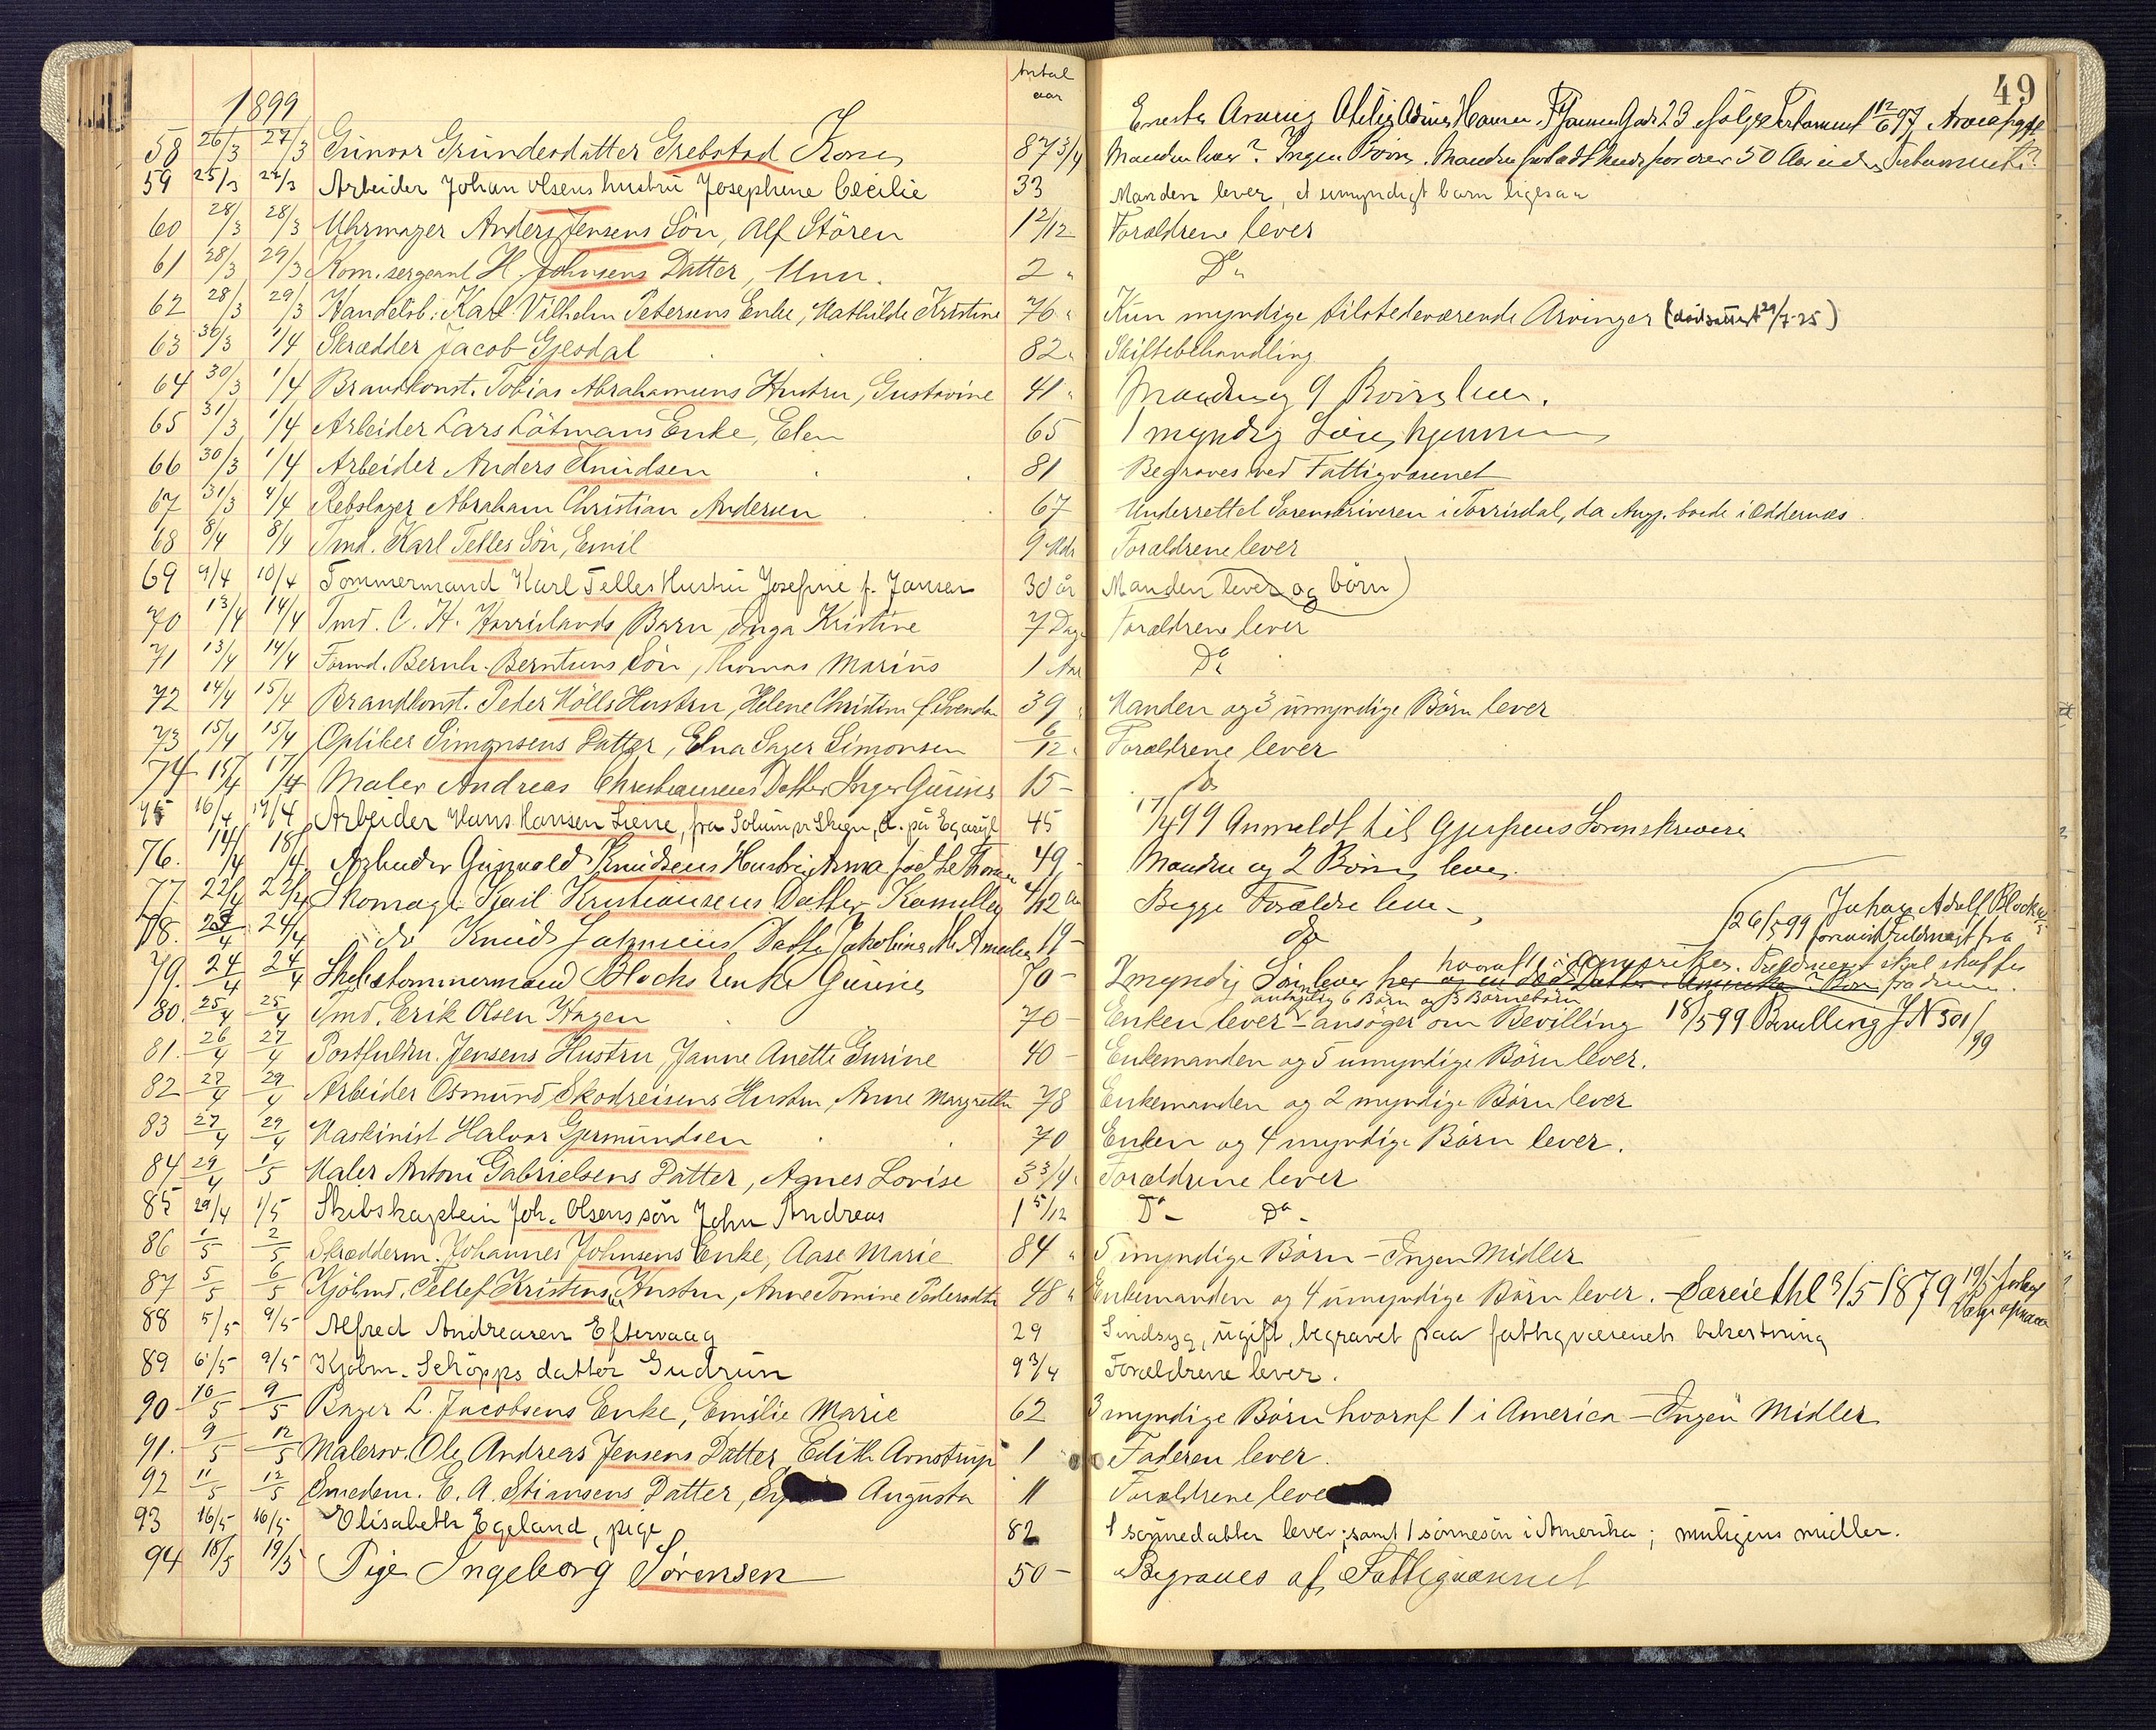 49
1899
Antal aar
Eneste Arving
58 26/3 27/3 Gunvor Gundersdatter Grebstad Kone 87 3/4 Manden lever? Ingen Børn. Manden forlodt hende for over 50 Aar siden
59 25/3 27/3 Arbeider Johan Olsens hustru Josephine Cecilie 33 Manden lever, et umyndigt barn ligesaa
60 28/3 28/3 Uhrmager Anders Jensens Sön, Alf Stören 1 2/12 Forældrene lever
61 28/3 29/3 Kom. sergeant H. Johnsens Datter, Unn. 2 " Do
62 28/3 29/3 Handelsb. Karl Vilhelm Petersens Enke, Mathilde Kristine 76 " Kun myndige tilstedeværende Arvinger
63 30/3 1/4 Skrædder Jacob Gjesdal 82 " Skiftebehandling
64 30/3 1/4 Brandkonst. Tobias Abrahamsens Hustru, Gustavine 41 " Manden og 9 Börn lever.
65 31/3 1/4 Arbeider Lars Lötmans Enke, Elen 65 1 myndig Sön hjemme
66 30/3 1/4 Arbeider Anders Knudsen 81 Begraves ved Fattigvæsenet
67 31/3 4/4 Rebslager Abraham Christian Andersen 67 Underrettet Sorenskriveren i Torrisdal, da Angj. boede i Oddernæs.
68 8/4 8/4 Tmd. Karl Telles Sön, Emil 9 Mdr Forældrene lever
69 9/4 10/4 Tömmermand Karl Telles Hustru Josefine f. Jansen 30 år Manden lever og börn
70 13/4 14/4 Tmd. C. H. Harrislands Barn, Inga Kristine 7 Dage Forældrene lever
71 13/4 14/4 Formd. Bernh. Berntsens Sön, Thomas Marius 1 Aar Do
72 14/4 15/4 Brandkonst. Peder Mölls Hustru, Helene Christine f. Svendsen 39 " Manden og 3 umyndige Börn lever
73 15/4 15/4 Optiker Simonsens Datter, Elna Sager Simonsen 6/12 " Forældrene lever
74 15/4 17/4 Maler Andreas Christiansens Datter Inger Gurine 15 - do
75 16/4 19/4 Arbeider Hans Hansen Liene, fra Solum pr Skien, d. på Eg asyl 45 17/4 99 Anmeldt til Gjerpens Sorenskriveri
76. 14/4 18/4 Arbeider Gunvald Knudsens Hustru Anna född 49 - Manden og 2 Börn lever.
77. 22/4 22/4 Skomag. Kristiansens Datter Kamilla 4/12 Aar Begge Forældre lever
78. 23/4 24/4 do Knud Datter Jakobine M. Amalie 19 - do
26/5 99 Johan Adolf Block
79. 24/4 24/4 Skibstømmermand Blochs Enke Gurine 70 - 2 myndig Sön lever hvoraf 1 i Amerika. Fuldmagt skal skaffes fra denne.
antagelig 6 Börn og 3 Börnebörn
80. 25/4 25/4 Tmd. Erik Olsen Hagen 70 - Enken lever - ansöger om Bevilling 18/5 99 Bevilling J N 301/99
81. 26/4 27/4 Postfuldm. Jensens Hustru, Janne Anette Gurine 40 - Enkemanden og 5 umyndige Börn lever.
82 27/4 29/4 Arbeider Osmund Skodreisens Hustru, Anne Margrethe 78 Enkemanden og 2 myndige Börn lever
83 27/4 29/4 Maskinist Halvor Gjermundsen 70 Enken og 4 myndige Börn lever.
84 29/4 1/5 Maler Antoni Gabrielsens Datter, Agnes Lovise 3 3/4 " Forældrene lever
85 29/4 1/5 Skibskaptein Joh. Olsens sön John Andreas 1 5/12 Do - Do -
86 1/5 2/5 Skrædderm. Johannes Johnsens Enke, Aase Marie 84 " 5 myndige Börn - Ingen Midler
87 5/5 6/5 Kjöbmd. Tellef Kristens Hustru, Anne Tomine Pedersdtr 48 " Enkemanden og 4 umyndige Börn lever. - 3/5 1879
88 5/5 9/5 Alfred Andreasen Eftervaag 29 Sindsyg, ugift, begravet paa fattigvæsenets bekostning
89 6/5 9/5 Kjøbm. Schöpps datter Gudrun 9 3/4 Forældrene lever.
90 10/5 9/5 Bager L. Jacobsens Enke, Emilie Marie 62 3 myndige Börn hvoraf 1 i America - Ingen Midler
91. 9/5 12/5 Malersv. Ole Andreas Jensens Datter, Edith Arnstrup 1 Faderen lever.
92 11/5 12/5 Smedem. E. A. Stiansens Datter, Augusta 11 Forældrene leve
93 16/5 16/5 Elisabeth Egeland, pige 82 1 sönnedatter lever; samt 1 sönnesön i Amerika; muligens midler.
94 18/5 19/5 Pige Ingeborg Sørensen 50 - Begraves af Fattigvæsenet